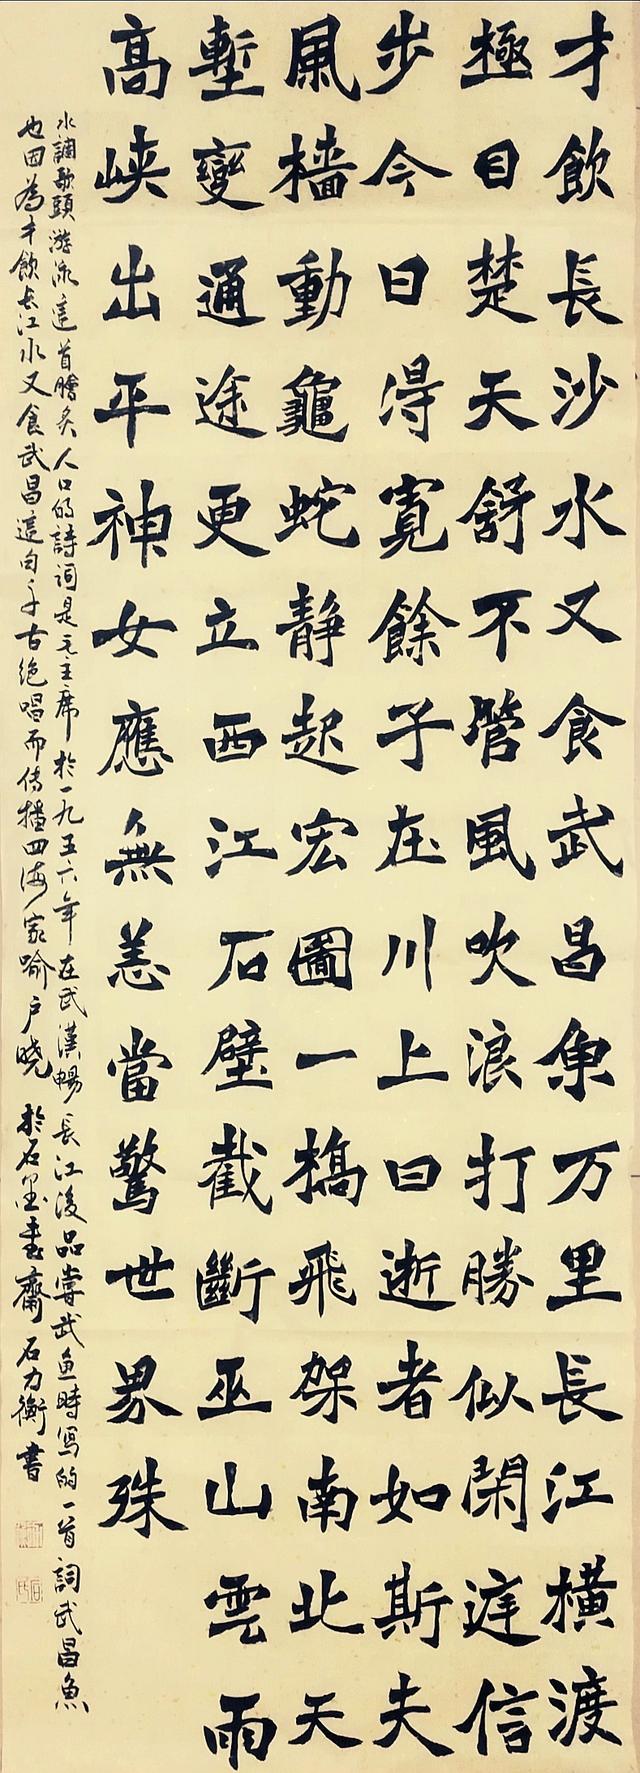 才飲長沙水又食武昌魚万里長江橫渡
極目楚天舒不管風吹浪打勝似閑庭信
步今日得寬餘子在川上曰逝者如斯夫
風檣動龜蛇靜起宏圖一橋飛架南北天
塹變通途更立西江石壁截斷巫山雲雨
高峡出平神女應無恙當驚世界殊
水調歌頭游泳這首膾炙人口的詩詞是毛主席於一九五六年在武漢暢長江後品嘗武魚時寫的一首詞武昌魚
也因為才飲長江水又食武昌這句千古絕唱而傳播四海家喻户曉 於石墨書齋石力衡書